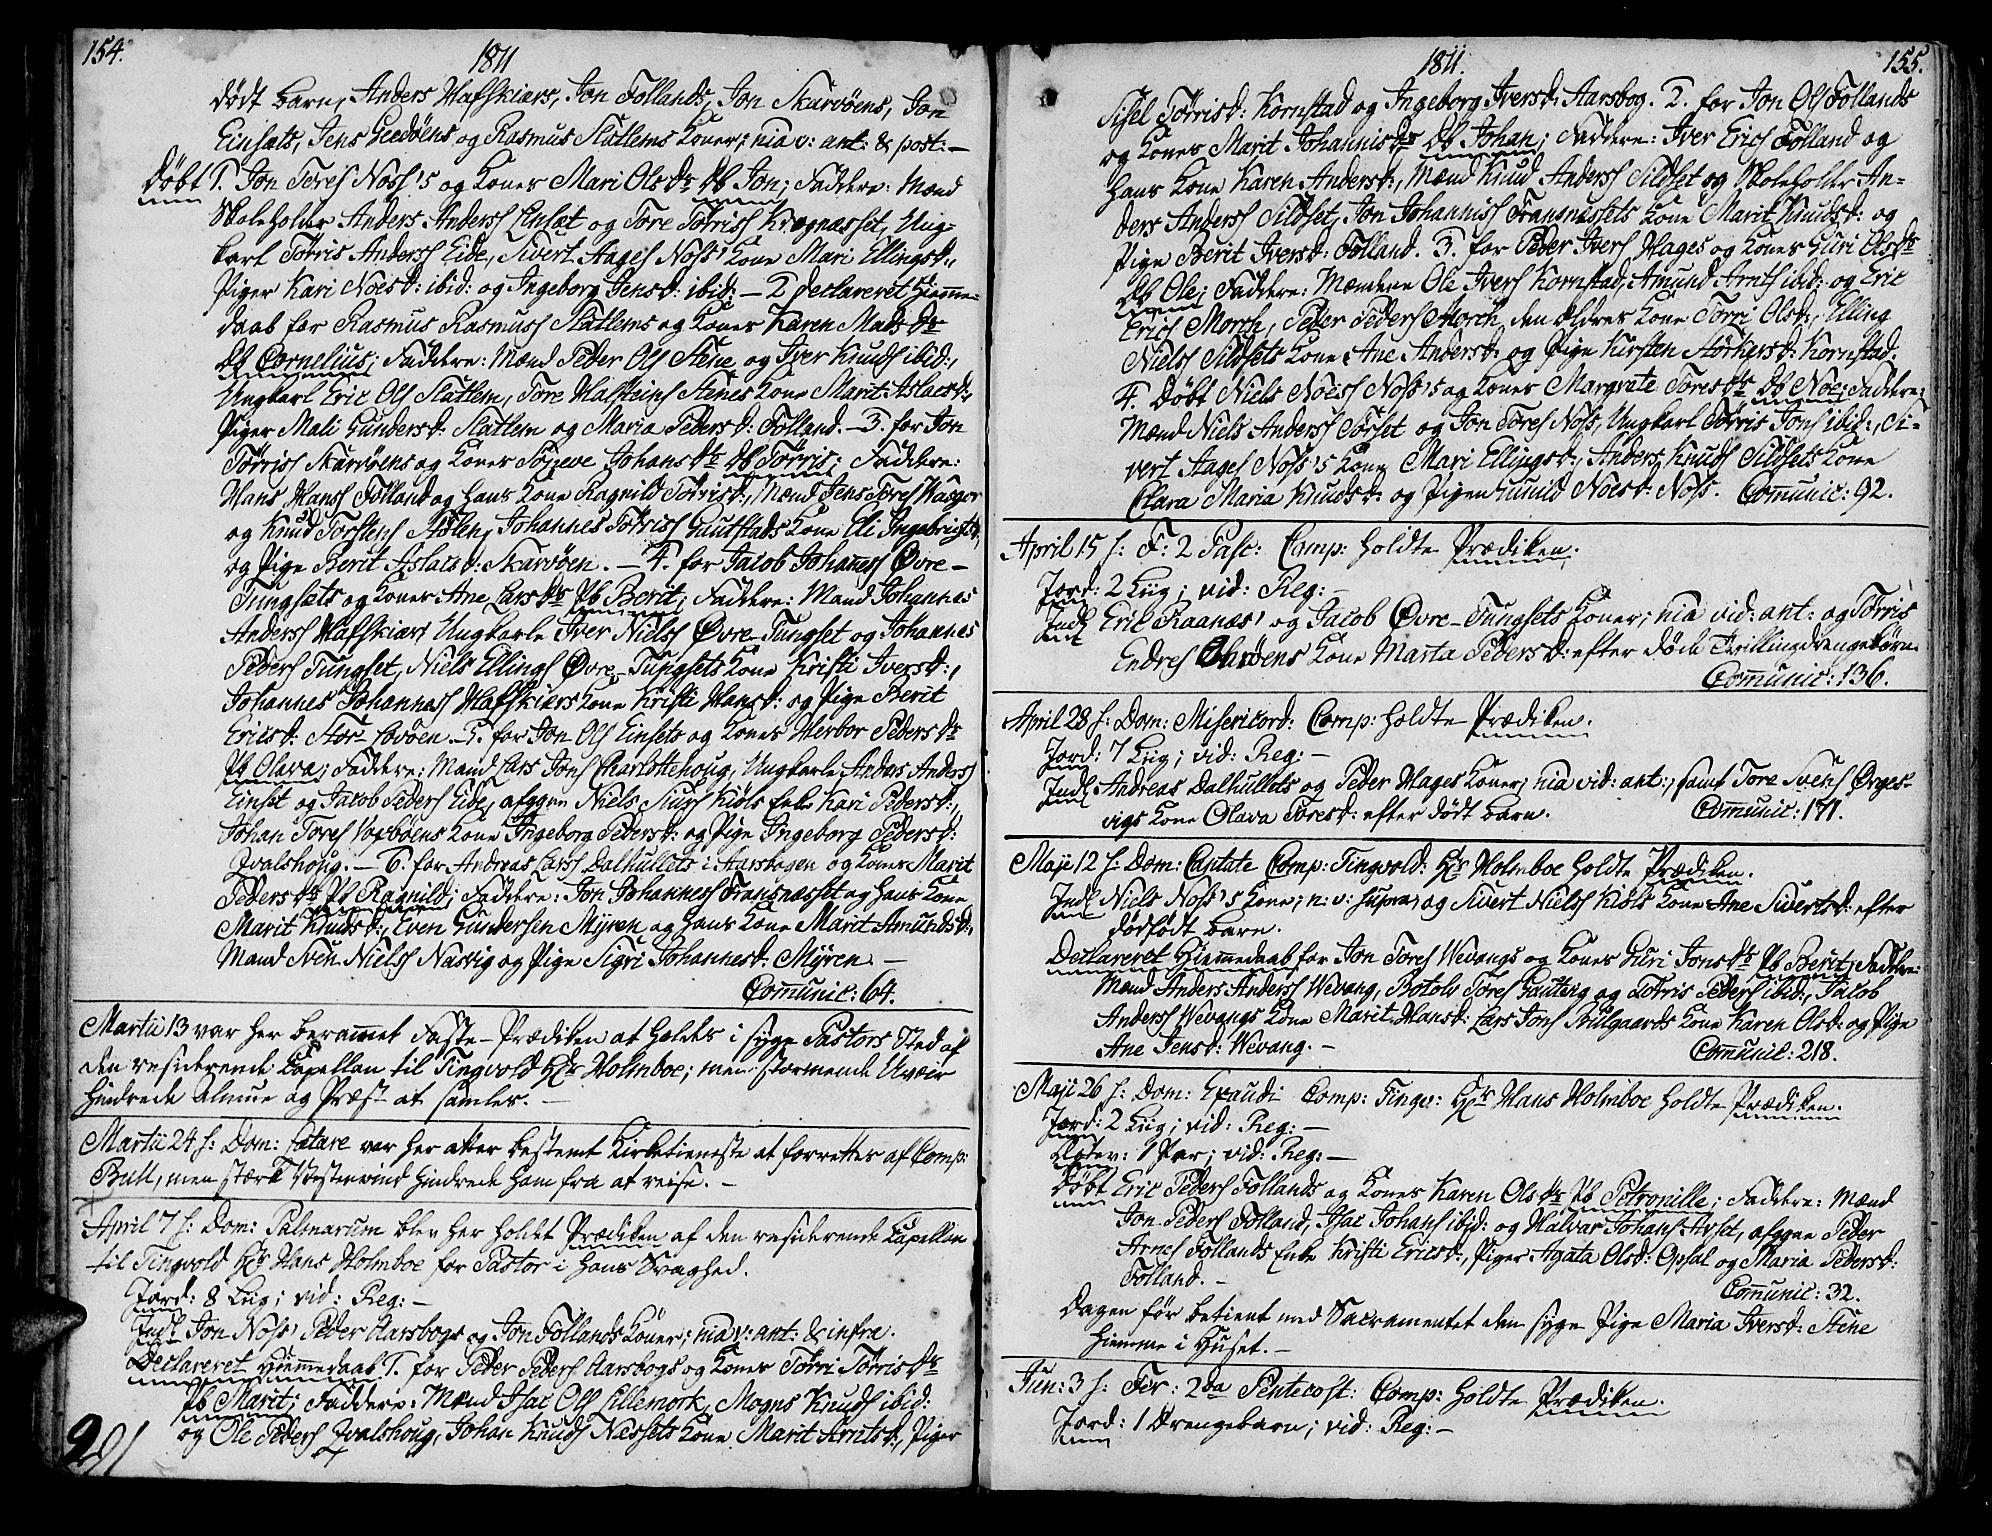 154.
1811
dødt barn, Anders Hafskiærs, Jon Follands, Jon Skarvøens, Jon
Einsæts, Jens Geedøens og Rasmus Slatlems Koner; nia v: ant: & post: —
Døbt 1. Jon Tores Noss's og Kones Mari Olsdr Db Jon; Faddere: Mænd
Skoleholder Anders Anders Einsæt og Tore Tørriss Krognæsset, Ung-
karl Tørris Anderss Eide, Sivert Aages Noss' Kone Mari Ellingsd:,
Piger Kari Noesd: ibid: og Ingeborg Jensd: ibid: — 2 declareret Hiemme-
daab for Rasmus Rasmuss Slatlems og Kones Karen Madsdr
Db Cornelius; Faddere: Mænd Peder Ols Stene og Iver Knuds ibid:,
Ungkarl Eric Ols Slatlem, Tore Halsteins Stenes Kone Marit Aslacsd:,
Piger Mali Gundersd: Slatlem og Maria Pedersd: Folland. — 3. for Jon
Tørriss Skarvøens og Kones Johansdr Db Tørris; Faddere:
Hans Hanss Folland og hans Kone Ragnild Tørrisd:, Mænd Jens Tores
og Knud Torstens Stølen, Johannes Tørriss Kone Eli Ingebrigtsd,
og Pige Berit Aslacsd: Skarvøen. — 4. for Jacob Johannes Øvre-
Tungsæts og Kones Ane Larsdr Pb Berit; Faddere: Mand Johannes
Anderss Hafskiær, Ungkarle Iver Niels Øvre-Tungset og Johannes
Peders Tungset, Niels Ellings Øvre-Tungsets Kone Kristi Iversd:,
Johannes Johanness Hafskiærs Kone Kristi Hansd: og Pige Berit
Ericsd: Stor- . 5. for Jon Ols Einsets og Kones Herbor Pedersdr
Pb Olava; Faddere: Mand Lars Jons Charlottehoug, Ungkarle Anders Anderss
Einset og Jacob Peders Eide, afggne Niels Kiøls Enke Kari Pedersd:,
Johan Tores Kone Ingeborg Pedersd: og Pige Ingeborg Pedersd:
Qvalshoug. — 6. for Andreas Larss Dalhullets i Aarsbogen og Kones Marit
Pedersdr Pb Ragnild; Faddere: Jon Johanness Fransnæsset og hans Kone
Marit Knudsd:, Even Gundersen Myren og hans Kone Marit Amundsd:,
Mand Sven Niels Nasvig og Pige Sigri Johannesd: Myren. —
Communic: 64.
Martii 13 var her berammet Faste-Prædiken at holdes i syge Pastors Sted af
den residerende Capellan til Tingvold Hr Holmboe; men stormende Uveir
hindrede Almue og Præst at samles. —
Martii 24 s: Dom: Lætare var her atter bestemt Kirketieneste at forrettes af Comp:
Bull, men stærk Vestenvind hindrede ham fra at reise. —
April 7 s: Dom: Palmarum blev her holdet Prædiken af den residerende Capellan
til Tingvold Hr Hans Holmboe for Pastor i hans Svaghed.
Jord: 8 Liig; vid: Reg: —
Indl. Jon Noss' Peder Aarsbogs og Jon Follands Koner; nia v: ant: & infra.
Declareret Hiemmedaab 1. for Peder Peders Aarsbogs og Kones Tørri Tørrisdr
Pb Marit; Faddere: Mænd Isac Ols Lillemork, Mogns Knuds ibid:
og Ole Peders Qvalshoug, Johan Knuds Næssets Kone Marit Arntsd:, Piger
155.
1811.
Sissel Tørrisd: Kornstad og Ingeborg Iversd: Aarsbog. 2. for Jon Ols Follands
og Kones Marit Johannisdr Db Johan; Faddere: Iver Erics Folland og
hans Kone Karen Andersd:, Mænd Knud Anderss Sildset og Skoleholder An-
ders Anderss Sildset, Jon Johanniss Fransnæssets Kone Marit Knudsd: og
Pige Berit Iversd: Folland. 3. for Peder Ivers Hages og Kones Guri Olsdr
Db Ole; Faddere: Mændene Ole Ivers Kornstad, Amund Arnts ibid: og Eric
Erics Morch, Peder Peders Morch den Ældres Kone Tørri Olsd:, Elling
Nielss Sildsets Kone Ane Andersd: og Pige Kirsten Størkersd: Kornstad.
4. Døbt Niels Noess Noss's og Kones Margrete Toresdr Db Noe; Faddere:
Mænd Niels Anderss Torset og Jon Tores Noss, Ungkarl Tørris Jons ibid:, Si-
vert Aages Noss's Kone Mari Ellingsd:, Anders Knuds Sildsets Kone
Clara Maria Knudsd: og Pigen Gunild Noesd: Noss. Communic: 92.
April 15 s: F: 2 Pasc: Comp: holdte Prædiken.
Jord: 2 Liig; vid: Reg: —
Indl. Eric Raanæs' og Jacob Øvre-Tungsets Koner; nia vid: ant: og Tørris
Endres Kone Marta Pedersd: efter døde Trillingdrengebørn.
Communic: 136.
April 28 s: Dom: Misericord: Comp: holdte Prædiken.
Jord: 7 Liig; vid: Reg: —
Indl. Andreas Dalhullets og Peder Hages Koner; nia vid: ant:, samt Tore Svens Ørges-
vigs Kone Olava Toresd: efter dødt barn. Communic: 171.
Maji 12 s: Dom: Cantate Comp: Tingvold: Hr Holmboe holdte Prædiken.
Indl. Niels Noss's Kone; n: v: supra, og Sivert Nielss Kiøls Kone Ane Sivertsd: efter
dødfødt barn.
Declareret Hiemmedaab for Jon Tores Wevangs og Kones Guri Jonsdr Pb Berit; Faddere:
Mænd Anders Anderss Wevang, Botolv Tores og Tørris Peders ibid:, Jacob
Anderss Wevangs Kone Marit Hansd: Lars Jons Kone Karen Olsd: og Pige
Ane Jensd: Wevang. — Communic: 218.
Maji 26 s: Dom: Exaudi Comp: Tingv: Hr Hans Holmboe holdte Prædiken.
Jord: 2 Liig; vid: Reg: —
Cop: 1 Par; vid: Reg: —
Døbt Eric Peders Follands og Kones Karen Olsdr Pb Petronille; Faddere: Mænd
Jon Peders Folland, Isac Johans ibid: og Halvar Johans Arset, afggne Peder
Arnes Follands Enke Kristi Ericsd:, Piger Agata Olsd: Opsal og Maria Pedersd:
Folland. — Communic: 32.
Dagen før betient med Sacramentet den syge Pige Maria Iversd: Stene
hiemme i Huset. —
Jun: 3 s: Fer: 2da Pentecost: Comp: holdte Prædiken.
Jord: 1 Drengebarn; vid: Reg: —